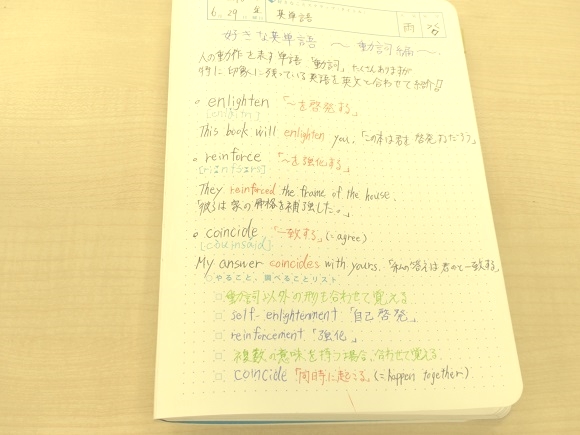 6.29 金 英単語 雨
好きな英単語 ～動詞編～
人の動作を表す単語「動詞」たくさんありますが
特に印象に残っている英語を英文と合わせて紹介!!
enlighten 「～を啓発する」
This book will enlighten you.「この本は君を啓発するだろう」
reinforce 「～を強化する」
They reinforced the frame of the house.
「彼らは家の骨格を補強した。」
coincide 「一致する」(= agree)
My answer coincides with yours.「私の答えは君のと一致する」
やること、調べることリスト
動詞以外の形も合わせて覚える
self-enlightenment「自己啓発」
reinforcement「強化」
複数の意味を持つ場合、合わせて覚える
coincide「同時に起こる」(= happen together)